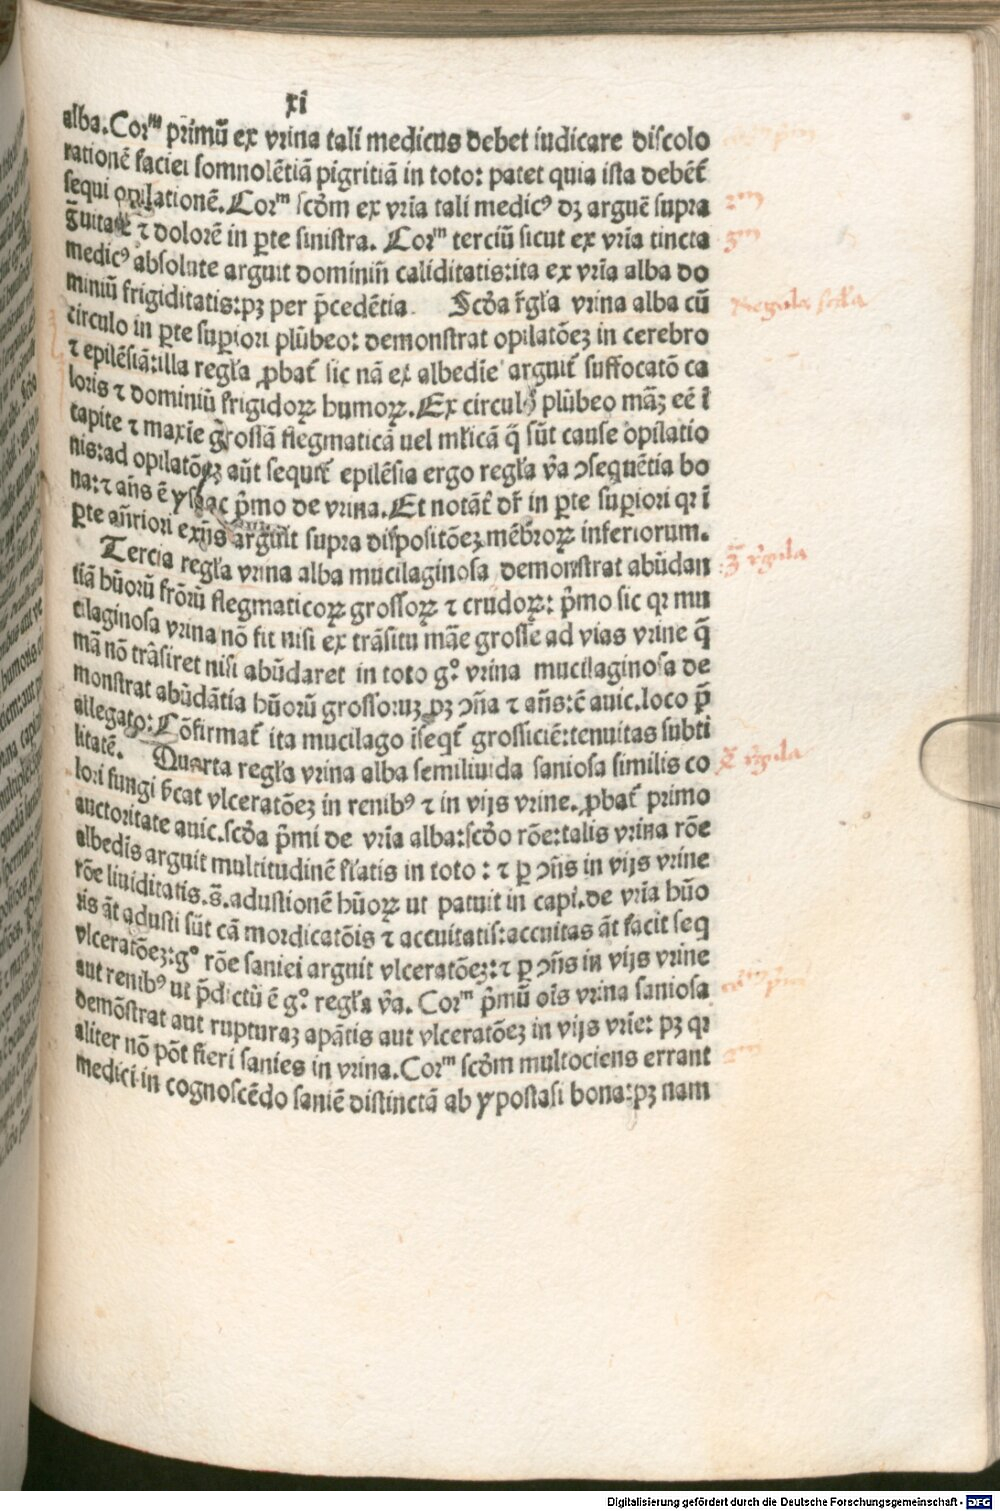 xi
alba. Corᵐ primū ex vrina tali medicus debet iudicare discolo
rationē faciei somnolētiā pigritiā in toto: patet quia ista debēt
sequi opilationē. Corᵐ scḋm ex vrīa tali medicꝰ dꝫ arguē supra
ḡuitatē ⁊ dolorē in ꝑte sinistra. Corᵐ terciū sicut ex vrīa tincta
medicꝰ absolute arguit dominiū caliditatis: ita ex vrīa alba do
miniū frigiditatis: pꝫ per p̄cedētia. Scḋa r̄gl̄a vrina alba cū
circulo in ꝑte suꝑiori plūbeo: demonstrat opilatōeꝫ in cerebro
⁊ epilēsiā: illa regl̄a ꝓbat̄ sic nā ex albedīe arguit̄ suffocatō ca
loris ⁊ dominiū frigidoꝝ humoꝝ. Ex circulo plūbeo māꝫ eē ī
capite ⁊ maxīe grossā flegmaticā uel ml̄icā q̄ sūt cause opilatio
nis: ad opilatōeꝫ aūt sequit̄ epilēsia ergo regl̄a v̄a ↄsequētia bo
na: ⁊ an̄s ē ysaac p̄mo de vrina. Et notāt̄ dr̄ in ꝑte suꝑiori qꝛ ī
ꝑte an̄riori exn̄s arguit supra dispositōeꝫ mēbroꝝ inferiorum.
Tercia regl̄a vrina alba mucilaginosa demonstrat abūdan
tiā hūorū frōrū flegmaticoꝝ grossoꝝ ⁊ crudoꝝ: p̄mo sic qꝛ mu
cilaginosa vrina nō fit nisi ex trāsitu māe grosse ad vias vrine q̄
mā nō trāsiret nisi abūdaret in toto g° vrina mucilaginosa de
monstrat abūdātia hūorū grossoruꝫ pꝫ ↄn̄a ⁊ an̄s: ē auic. loco p̄
allegato: Cōfirmat̄ ita mucilago īseqt̄ grossiciē: tenuitas subti
litatē. Quarta regl̄a vrina alba semiliuida saniosa similis co
lori fungi s̄cat vlceratōeꝫ in renibꝰ ⁊ in vijs vrine. ꝓbat̄ primo
auctoritate auic. scḋa p̄mi de vrīa alba: scḋo rōe: talis vrina rōe
albedīs arguit multitudinē fl̄atis in toto: ⁊ ꝑ ↄn̄s in vijs vrine
rōe liuiditatis. s̄. adustionē hūoꝝ ut patuit in capi. de vrīa hūo
ris āt adusti sūt cā mordicatōis ⁊ accuitatis: accuitas āt facit seq
vlceratōeꝫ: g° rōe saniei arguit vlceratōeꝫ: ⁊ ꝑ ↄn̄s in vijs vrine
aut renibꝰ ut p̄dictū ē g° regl̄a v̄a. Corᵐ p̄mū oīs vrina saniosa
demōstrat aut rupturaꝫ apātis aut vlceratōeꝫ in vijs vrīe: pꝫ qꝛ
aliter nō pōt fieri sanies in vrina. Corᵐ scḋm multociens errant
medici in cognoscēdo saniē distinctā ab ypostasi bona: pꝫ nam
2ᵐ
3ᵐ
Regula scḋa
3ᵃ r̄gula
4ᵃ r̄gula
2ᵐ
Digitalisierung gefördert durch die Deutsche Forschungsgemeinschaft - DFG